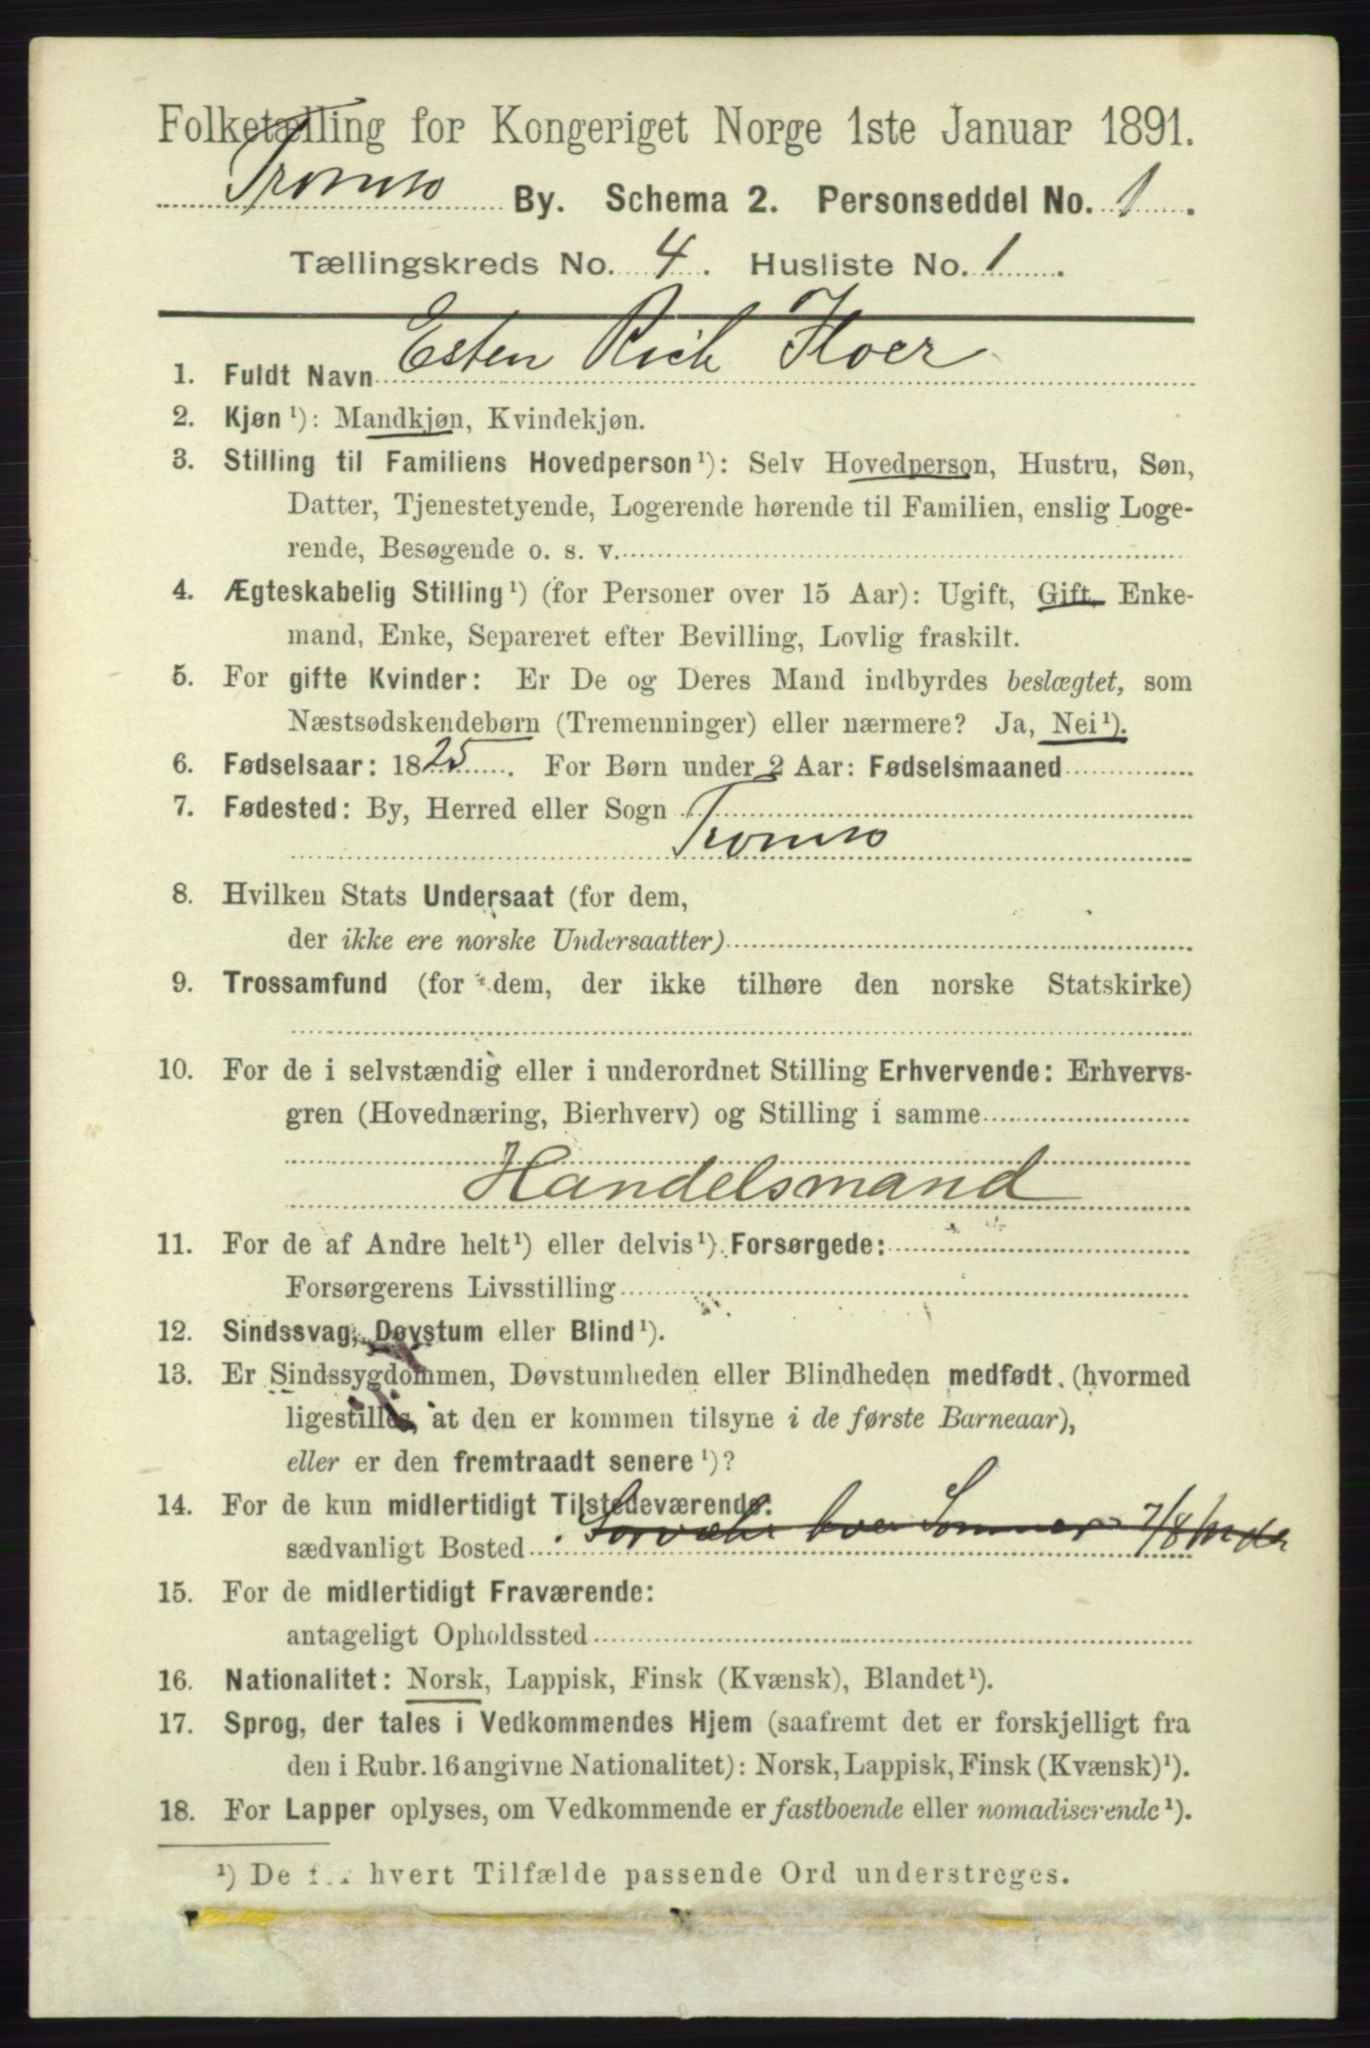 Folketælling for Kongeriget Norge 1ste Januar 1891.
Tromsø By. Schema 2. Personseddel No. 1.
Tællingskreds No. 4. Husliste No. 1.
1. Fuldt Navn Esten Rick Floer
2. Kjøn¹): Mandkjøn, Kvindekjøn.
3. Stilling til Familiens Hovedperson¹): Selv Hovedperson, Hustru, Søn,
Datter, Tjenestetyende, Logerende hørende til Familien, enslig Loge-
rende, Besøgende o. s. v.
4. Ægteskabelig Stilling¹) (for Personer over 15 Aar): Ugift, Gift, Enke-
mand, Enke, Separeret efter Bevilling, Lovlig fraskilt.
5. For gifte Kvinder: Er De og Deres Mand indbyrdes beslægtet, som
Næstsødskendebørn (Tremenninger) eller nærmere? Ja, Nei¹).
6. Fødselsaar: 1825. For Børn under 2 Aar: Fødselsmaaned
7. Fødested: By, Herred eller Sogn
Tromsø
8. Hvilken Stats Undersaat (for dem,
der ikke ere norske Undersaatter)
9. Trossamfund (for dem, der ikke tilhøre den norske Statskirke)
10. For de i selvstændig eller i underordnet Stilling Erhvervende: Erhvervs-
gren (Hovednæring, Bierhverv) og Stilling i samme
Handelsmand
11. For de af Andre helt¹) eller delvis¹) Forsørgede:
Forsørgerens Livsstilling
12. Sindssvag, Døvstum eller Blind¹).
13. Er Sindssygdommen, Døvstumheden eller Blindheden medfødt (hvormed
ligestilles, at den er kommen tilsyne i de første Barneaar),
eller er den fremtraadt senere¹)?
14. For de kun midlertidigt Tilstedeværende:
sædvanligt Bosted hver Sommer 7/8
15. For de midlertidigt Fraværende:
antageligt Opholdssted
16. Nationalitet: Norsk, Lappisk, Finsk (Kvænsk), Blandet¹).
17. Sprog, der tales i Vedkommendes Hjem (saafremt det er forskjelligt fra
den i Rubr. 16 angivne Nationalitet): Norsk, Lappisk, Finsk (Kvænsk)¹).
18. For Lapper oplyses, om Vedkommende er fastboende eller nomadiserende¹).
¹) De for hvert Tilfælde passende Ord understreges.